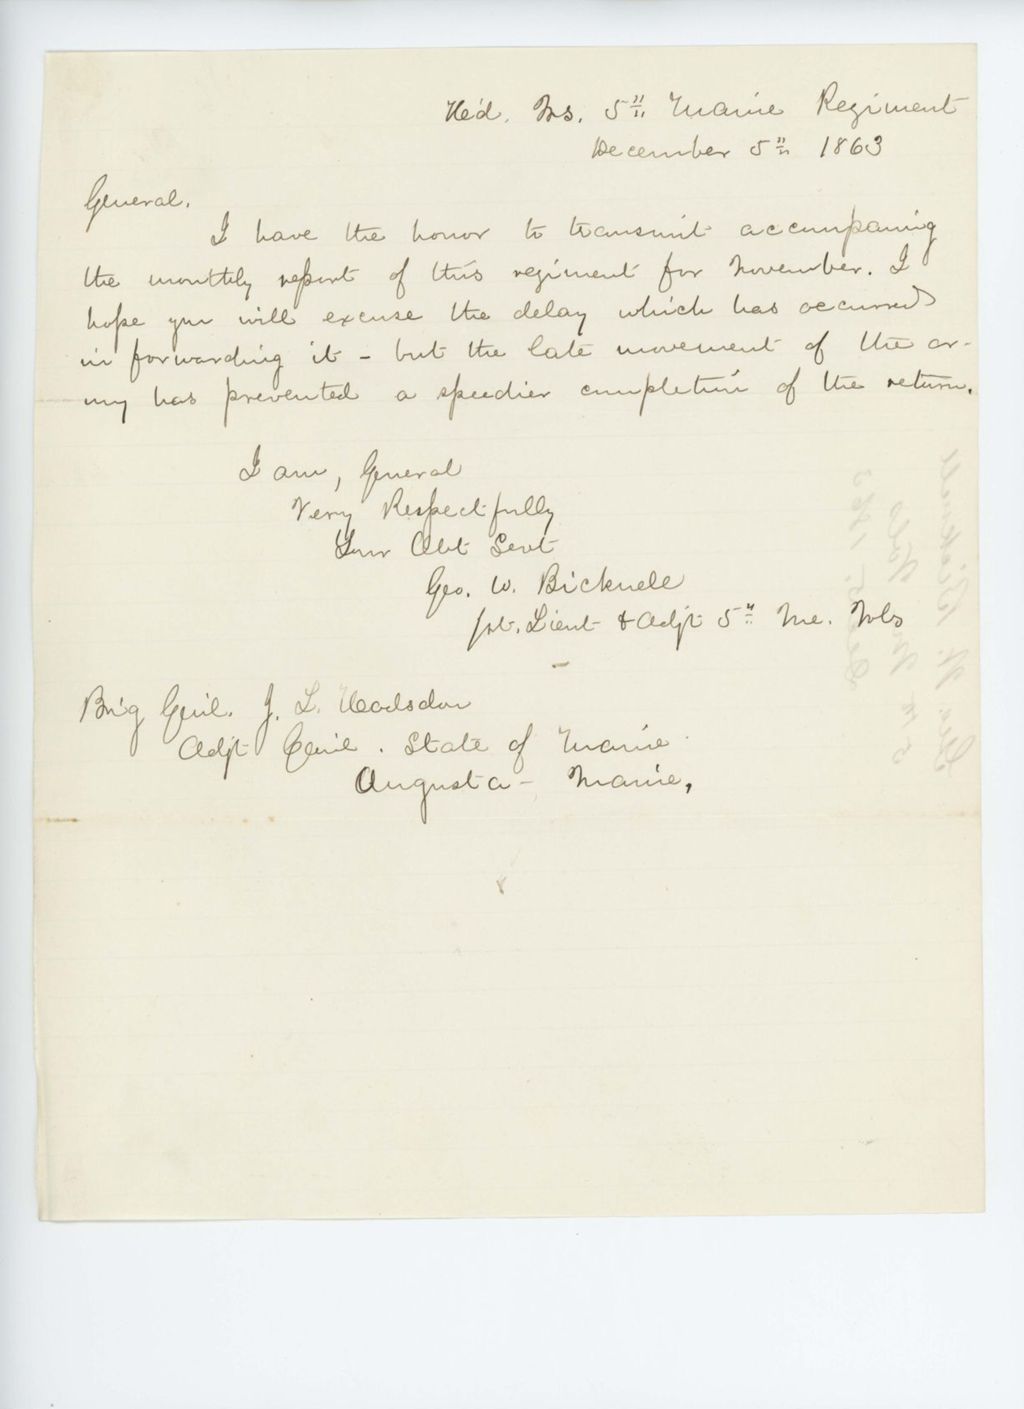 Hed. Qrs. 5th Maine Regiment
December 5th 1863
General.
I have the honor to transmit accompaning
the monthly report of this regiment for November. I
hope you will excuse the delay which has occurred
in forwarding it - but the late movement of the ar-
my has prevented a speedier completion of the return.
I am, General
Very Respectfully
Your Obt Servt
Geo. W. Bicknell
1st. Lieut & Adjt 5th Me. Vols
Brig Genl. J. L. Hodsdon
Adjt Genl. State of Maine
Augusta - Maine,
Geo. W. Bicknell
5th Me Vols
Dec. 5. 1863